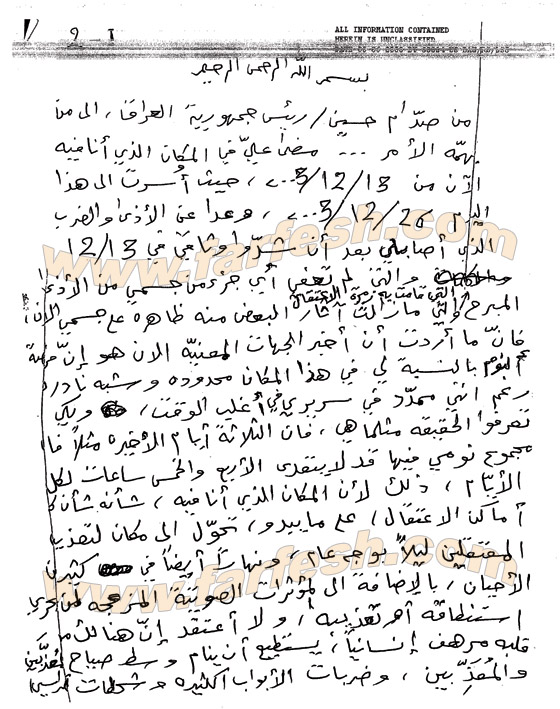 1/ 9-1
ALL INFORMATION CONTAINED
HEREIN IS UNCLASSIFIED
بسم الله الرحمن الرحيم
من صدّام حسين/ رئيس جمهورية العراق، الى من
يهمّه الأمر ... مضى عليّ في المكان الذي أنا فيه
الآن من 13/12/2003، حيث أُسرت الى هذا
اليوم 26/12/2003، وعدا عن الأذى والضرب
الذي أصابني بعد أن شدّوا وثاقي في 13/12
والتي لم تعفي أي جزء من جسمي من الأذى
التي قامت به زمرة الاعتقال
المبرح والتي ما زالت آثار البعض منه ظاهره على جسمي الآن
فانّ ما أردت أن أخبر الجهات المعنيّة الان هو إنّ فرصة
النوم بالنسبة لي في هذا المكان محدوده وشبه نادره
رغم انّي ممدّد في سريري في أغلب الوقت، ولكي
تعرفوا الحقيقه مثلما هي، فان الثلاثة أيام الأخيره مثلاً فان
مجموع نومي فيها قد لا يتعدى الأربع والخمس ساعات لكل
الأيّام، ذلك لأن المكان الذي أنا فيه، شأنه شأن
أماكن الاعتقال، على ما يبدو، تحوّل الى مكان لتعذيب
المعتقلين ليلاً بوجه عام، ونهاراً أيضاً في كثير من
الأحيان، بالإضافة الى المؤثرات الصوتيّة المزعجه لمن يجري
استنطاقه أهو تعذيبه، ولا أعتقد إنّ هنالك من
قلبه مرهف إنسانياً، يستطيع أن ينام وسط صياح المعذّبين
والمُعَذِّبين، وضربات الأبواب الكثيره و
www.farfesh.com
www.farfesh.com